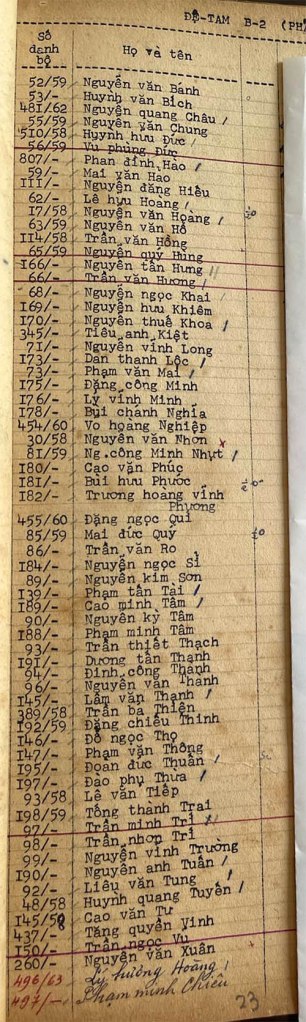 ĐỆ-TAM B-2 (PH
Số danh bộ Họ và tên
52/59 Nguyễn văn Bảnh
53/- Huỳnh văn Bích
48I/62 Nguyễn quang Châu /
55/59 Nguyễn văn Chung
5I0/58 Huỳnh hưu Đức /
56/59 Vu phùng Đức
807/- Phan đình Hao /
59/- Mai văn Hao
III/- Nguyễn đăng Hiếu
62/- Lê hưu Hoang /
I7/58 Nguyễn văn Hoang /
63/59 Nguyễn văn Hồ
II4/58 Trần văn Hồng
65/59 Nguyễn quý Hung
I66/- Nguyễn tấn Hưng //
66/- Trần văn Hương /
68/- Nguyễn ngọc Khai /
I69/- Nguyễn hưu Khiêm
I70/- Nguyễn thuế Khoa /
345/- Tiêu anh Kiệt
7I/- Nguyễn vĩnh Long
I73/- Dan thanh Lộc /
73/- Phạm văn Mai /
I75/- Đặng công Minh
I76/- Lý vĩnh Minh
I78/- Bùi chánh Nghĩa
454/60 Vo hoàng Nghiệp
30/58 Nguyễn văn Nhơn x
8I/59 Ng.công Minh Nhựt /
I80/- Cao văn Phúc
I8I/- Bùi hưu Phước
I82/- Trương hoàng vĩnh
Phương
455/60 Đặng ngọc Qui
85/59 Mai đức Quý
86/- Trần văn Ro
I84/- Nguyễn ngọc Sỉ
89/- Nguyễn kim Sơn
I39/- Phạm tấn Tài /
I89/- Cao minh Tâm /
90/- Nguyễn kỳ Tâm
I88/- Phạm minh Tâm
93/- Trần thiết Thạch
I9I/- Dương tấn Thanh
94/- Đinh công Thanh
96/- Nguyễn văn Thanh
I45/- Lâm văn Thanh /
389/58 Trần bá Thiện
I92/59 Đặng chiêu Thinh
I46/- Đỗ ngọc Thọ
I47/- Phạm văn Thông
I95/- Đoạn đức Thuần /
I97/- Đào phụ Thừa /
93/58 Lê văn Tiếp
I98/59 Tông thành Trai
97/- Trần minh Trí //
98/- Trần nhơn Trí
99/- Nguyễn vĩnh Trường
I90/- Nguyễn anh Tuấn /
92/- Liêu văn Tung /
48/58 Huỳnh quang Tuyến /
I45/58 Cao văn Tư
437/- Tăng quyền Vinh
I50/- Trần ngọc Vu
260/- Nguyễn văn Xuân
496/63 Lý tường Hoàng /
497/- Phạm minh Chiếu
23